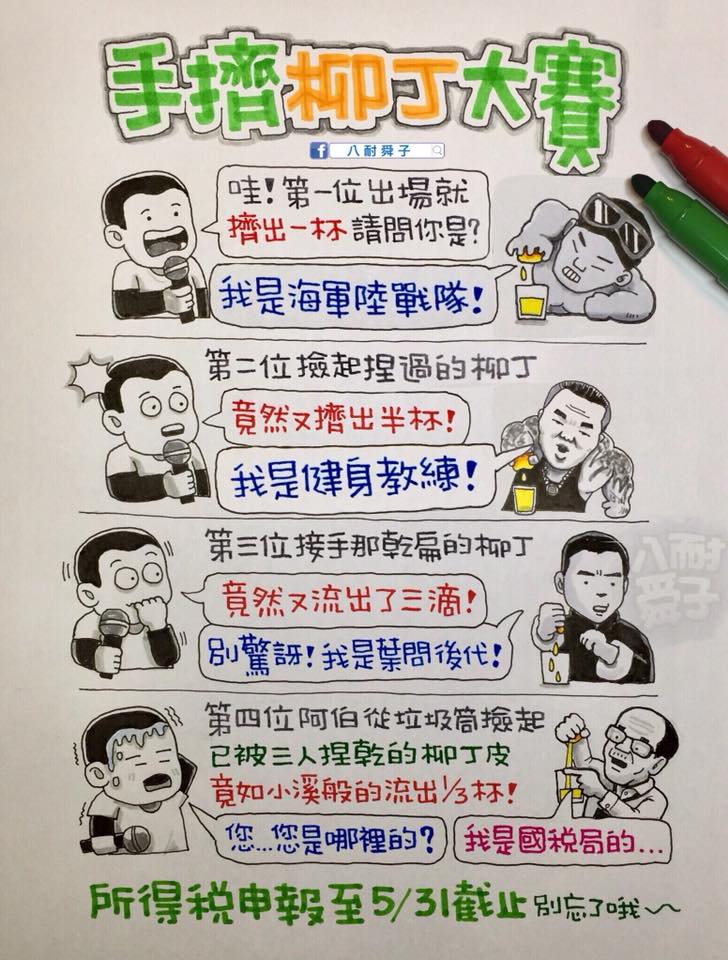 手擠柳丁大賽
八耐舜子
哇!第一位出場就
擠出一杯 請問你是?
我是海軍陸戰隊!
第二位撿起捏過的柳丁
竟然又擠出半杯!
我是健身教練!
第三位接手那乾扁的柳丁
竟然又流出了三滴!
別驚訝!我是葉問後代!
八耐
舜子
第四位阿伯從垃圾筒撿起
已被三人捏乾的柳丁皮
竟如小溪般的流出1/3杯!
您...您是哪裡的?
我是國稅局的...
所得稅申報至5/31截止 別忘了哦~